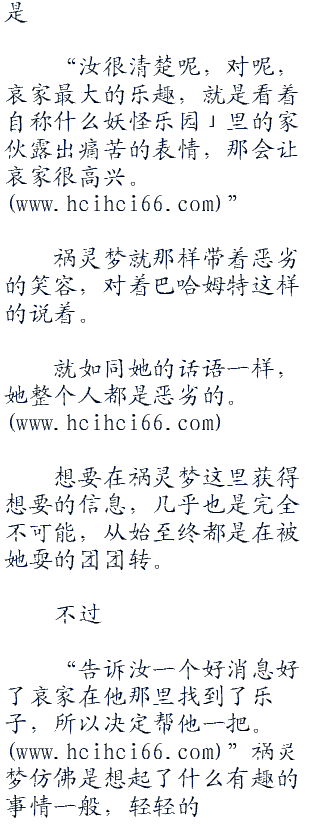 是
“汝很清楚呢，对呢，
哀家最大的乐趣，就是看着
自称什么妖怪乐园」里的家
伙露出痛苦的表情，那会让
哀家很高兴。
(www.hcihci66.com)”
祸灵梦就那样带着恶劣
的笑容，对着巴哈姆特这样
的说着。
就如同她的话语一样，
她整个人都是恶劣的。
(www.hcihci66.com)
想要在祸灵梦这里获得
想要的信息，几乎也是完全
不可能，从始至终都是在被
她耍的团团转。
不过
“告诉汝一个好消息好
了哀家在他那里找到了乐
子，所以决定帮他一把。
(www.hcihci66.com)”祸灵
梦仿佛是想起了什么有趣的
事情一般，轻轻的